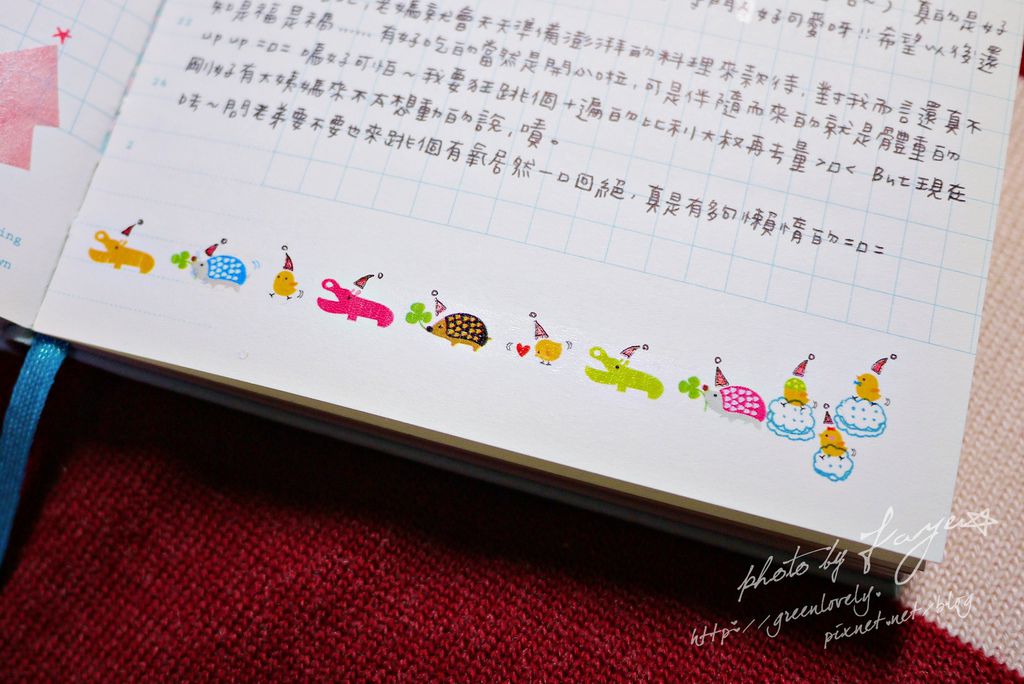 好可愛呀!!希望以後還
老媽就會天天準備澎湃的料理來款待,對我而言還真不
知是福是禍......有好吃的當然是開心啦,可是伴隨而來的就是體重的
up up =口= 嗚好可怕~我要狂跳個十遍的比利大叔再考量>口< But 現在
剛好有大姨媽來不太想動的說,嘖。
咦~問老弟要不要也來跳個有氧居然一口回絕,真是有夠懶惰的=口=
26
2
ing
wn
photo by Faye
http://greenlovely.
pixnet.net/blog